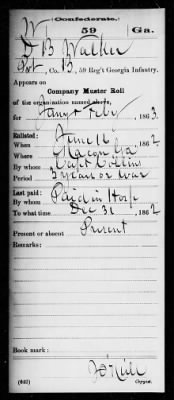 W Confederate. 59 Ga.
D B Walker
Pvt, Co. B, 59 Reg't Georgia Infantry.
Appears on
Company Muster Roll
of the organization named above,
for Jany & Feby, 1863.
Enlisted:
When June 16, 1862
Where Macon Ga
By whom Capt Collins
Period 3 years or War
Last paid:
By whom Paid in Hosp
To what time Dec 31, 1862
Present or absent Present
Remarks:
Book mark:
(642) Copyist.